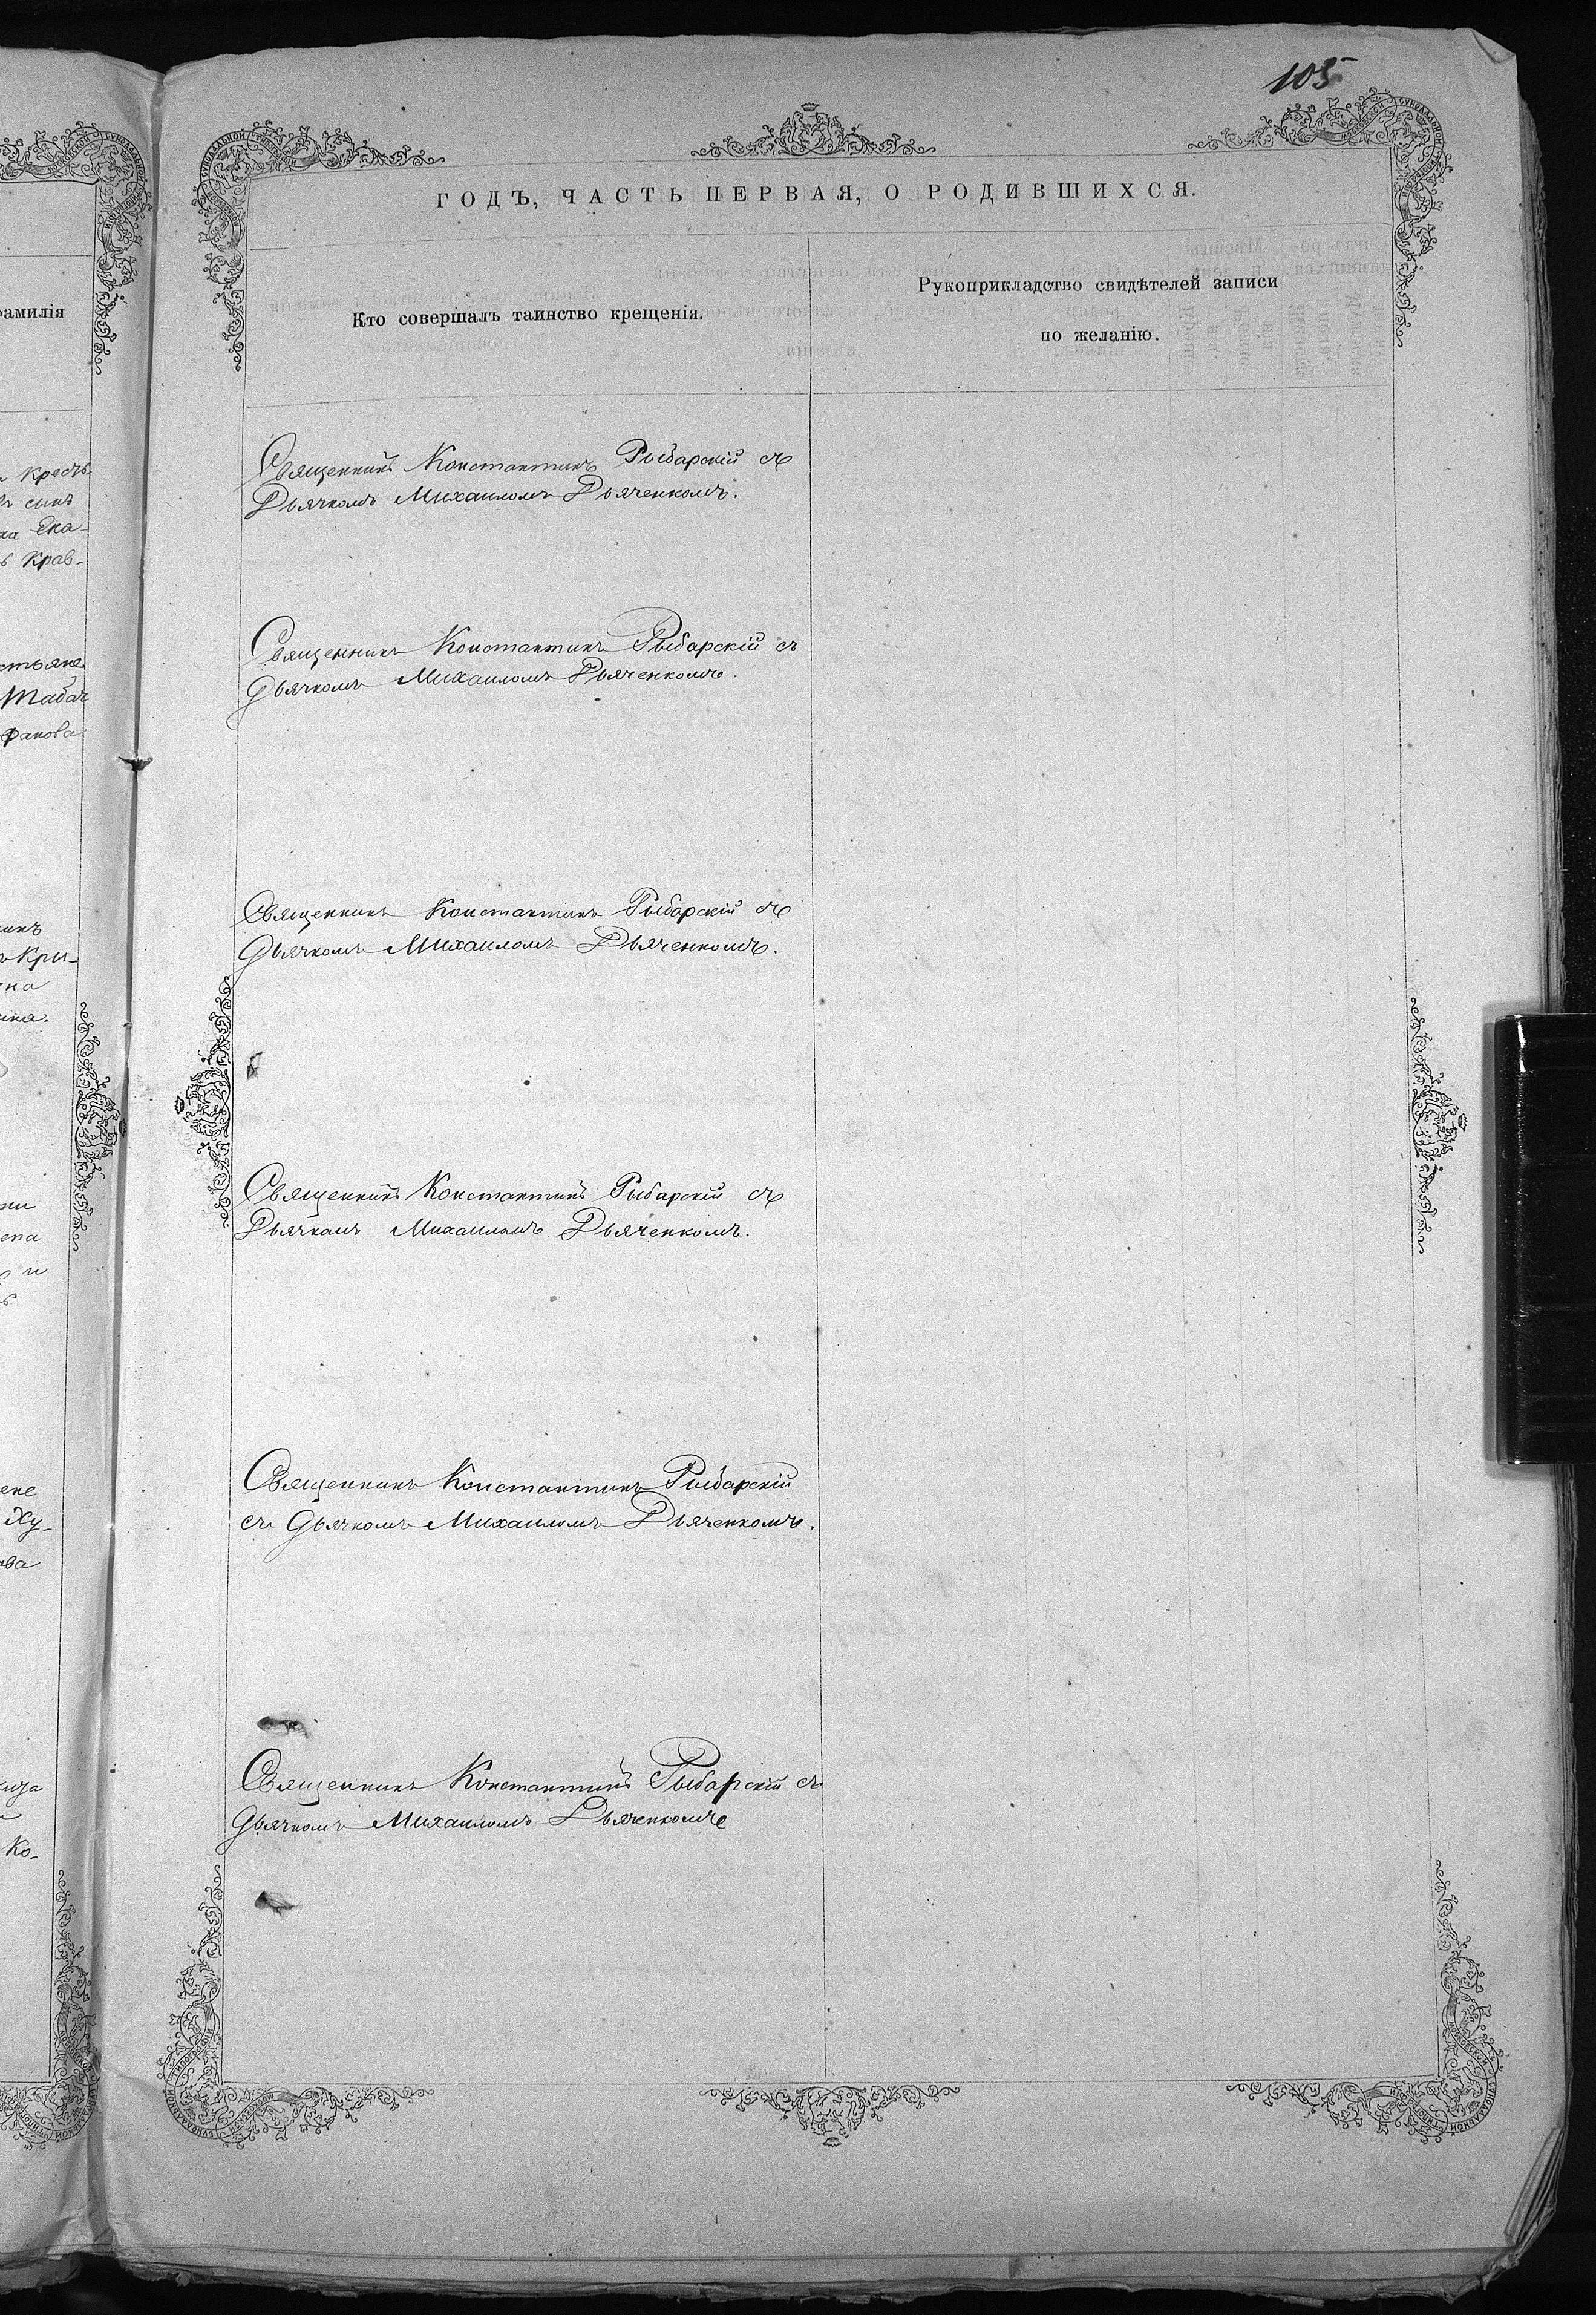 105
ГОДЪ, ЧАСТЬ ПЕРВАЯ, О РОДИВШИХСЯ.
Кто совершалъ таинство крещенія.
Рукоприкладство свидѣтелей записи
по желанію.
Священникъ Константинъ Рыбарскій съ
Дьячкомъ Михаиломъ Дьяченкомъ.
Священникъ Константинъ Рыбарскій съ
Дьячкомъ Михаиломъ Дьяченкомъ.
Священникъ Константинъ Рыбарскій съ
Дьячкомъ Михаиломъ Дьяченкомъ.
Священникъ Константинъ Рыбарскій съ
Дьячкомъ Михаиломъ Дьяченкомъ.
Священникъ Константинъ Рыбарскій
съ Дьячкомъ Михаиломъ Дьяченкомъ.
Священникъ Константинъ Рыбарскій съ
Дьячкомъ Михаиломъ Дьяченкомъ